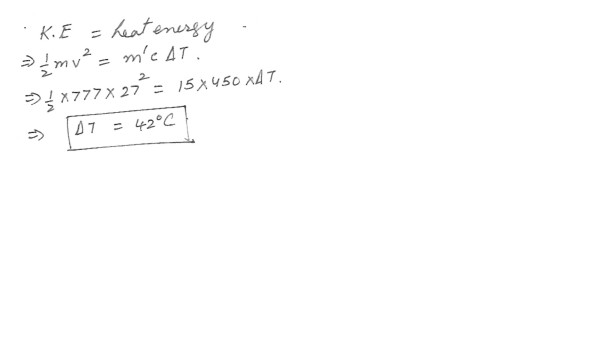 K.E = heat energy
⇒ 1/2 mv² = m'c ΔT.
⇒ 1/2 × 777 × 27² = 15 × 450 × ΔT.
⇒ ΔT = 42°C